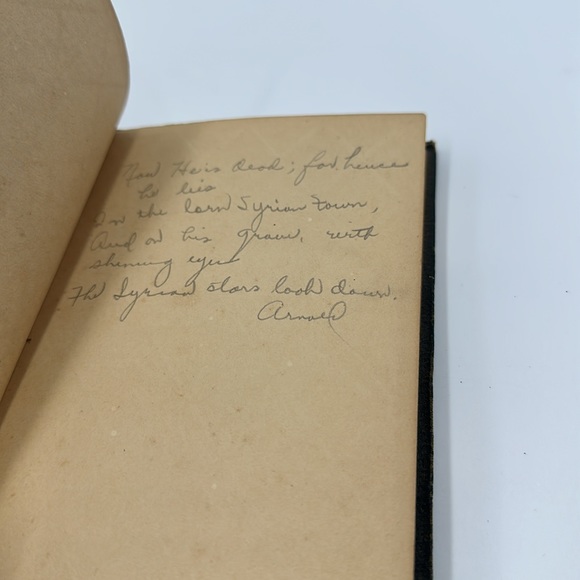 Now He is dead; far hence
he lies
In the lorn Syrian town,
And on his grave, with
shining eyes
The Syrian stars look down.
Arnold